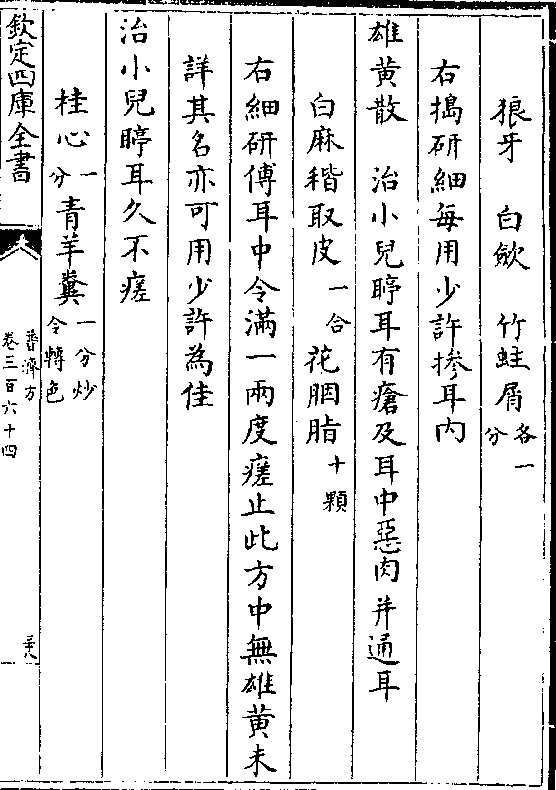 狼牙　白歛　竹蛀屑各一分
右搗研細每用少許摻耳内
雄黄散　治小兒聤耳有瘡及耳中惡肉并通耳
白麻稭取皮一合　花胭脂十顆
右細研傅耳中令滿一兩度瘥止此方中無雄黄未
詳其名亦可用少許為佳
治小兒聤耳久不瘥
桂心一分　青羊糞一分炒令轉色
欽定四庫全書
普濟方
卷三百六十四
三十八